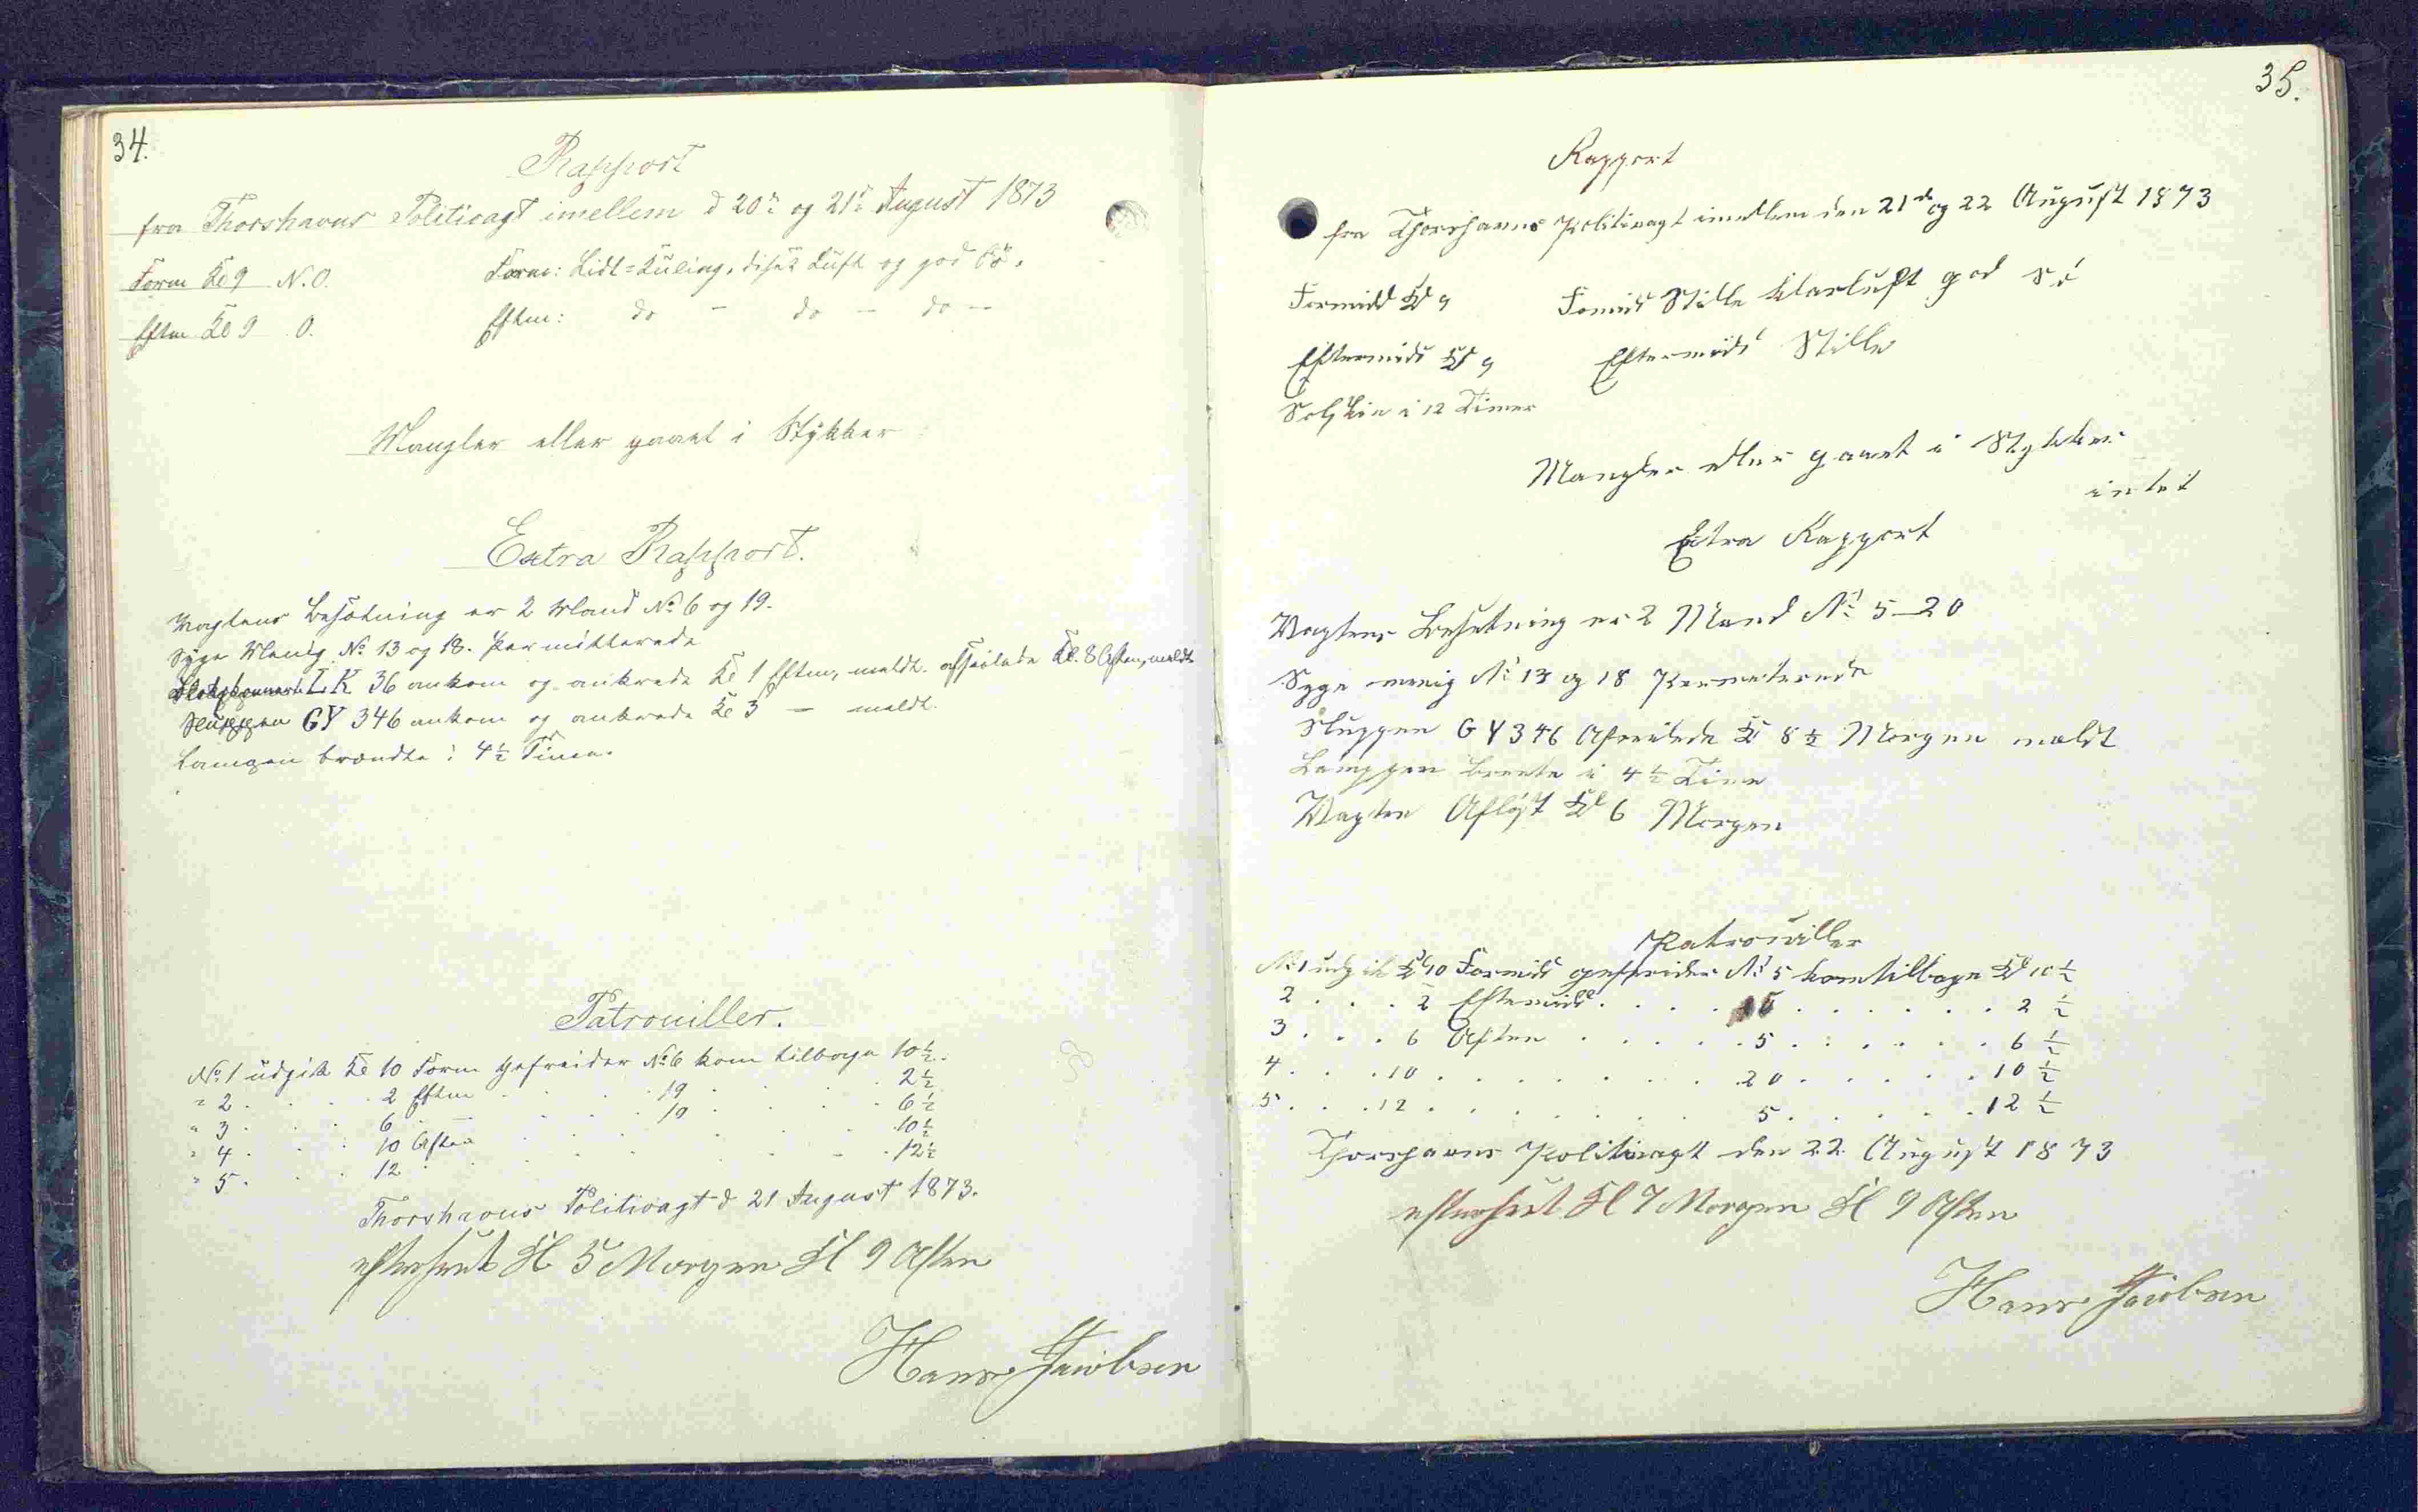 34.
Rapport
fra Thorshavns Politivagt imellem d 20de og 21de August 1873
Form Kl 9 N.O. Form: Lidt=Kuling, diset Luft og god Sö.
Eftm Kl 9 O. Eftm: do - do - do -
Mangler eller gaaet i Stykker
Extra Rapport.
Vagtens Besætning er 2 Mand No 6 og 19.
Syge Menig No 13 og 18. Permitterede
L.K 36 ankom og ankrede Kl 1 Eftm, meldt. afseilede Kl. 8 Aften, meldt
Sluppen GY 346 ankom og ankrede Kl 3 - meldt.
Lampen brændte i 4½ Time.
Patrouiller.
No 1 udgik Kl 10 Form Gefreider No 6 kom tilbage 10½.
" 2 . . . 2 Eftm . . . 19 . . . 2½
" 3 . . . 6 — . . . 19 . . . 6½
" 4 . . . 10 Aften . . . . . 10½
" 5 . . . 12 . . . . . 12½
Thorshavns Politivagt d 21 August 1873.
efterseet Kl 5 Morgen Kl 9 Aften
Hans Jacobsen
35.
Rapport
fra Thorshavns Politivagt imellem den 21de og 22 August 1873
Formidd Kl 9 Formid Stille Klarluft god Sö
Eftermidd Kl 9 Eftermidd Stille
Solskin i 12 Timer
Mangler eller gaaet i Stykker
intet
Extra Rapport
Vagtens Besetning er 2 Mand No 5-20
Syge menig No 13 og 18 Permeterede
Sluppen GY 346 Afseilede Kl 8½ Morgen meldt
Lamppen brente i 4½ Time
Vagten Aflöst Kl 6 Morgen
Patrouiller
No 1 udgik Kl 10 Formidd gefreider No 5 kom tilbage Kl 10½
2 . . . 2 Eftermidd . . . . . . . 2½
3 . . . 6 Aften . . . . . 5 . . . . . 6½
4 . . . 10 . . . . . . . 20 . . . . . 10½
5 . . . 12 . . . . . . . 5 . . . . . 12½
Thorshavns Politivagt den 22 August 1873
efterseet Kl 7 Morgen Kl 9 Aften
Hans Jacobsen